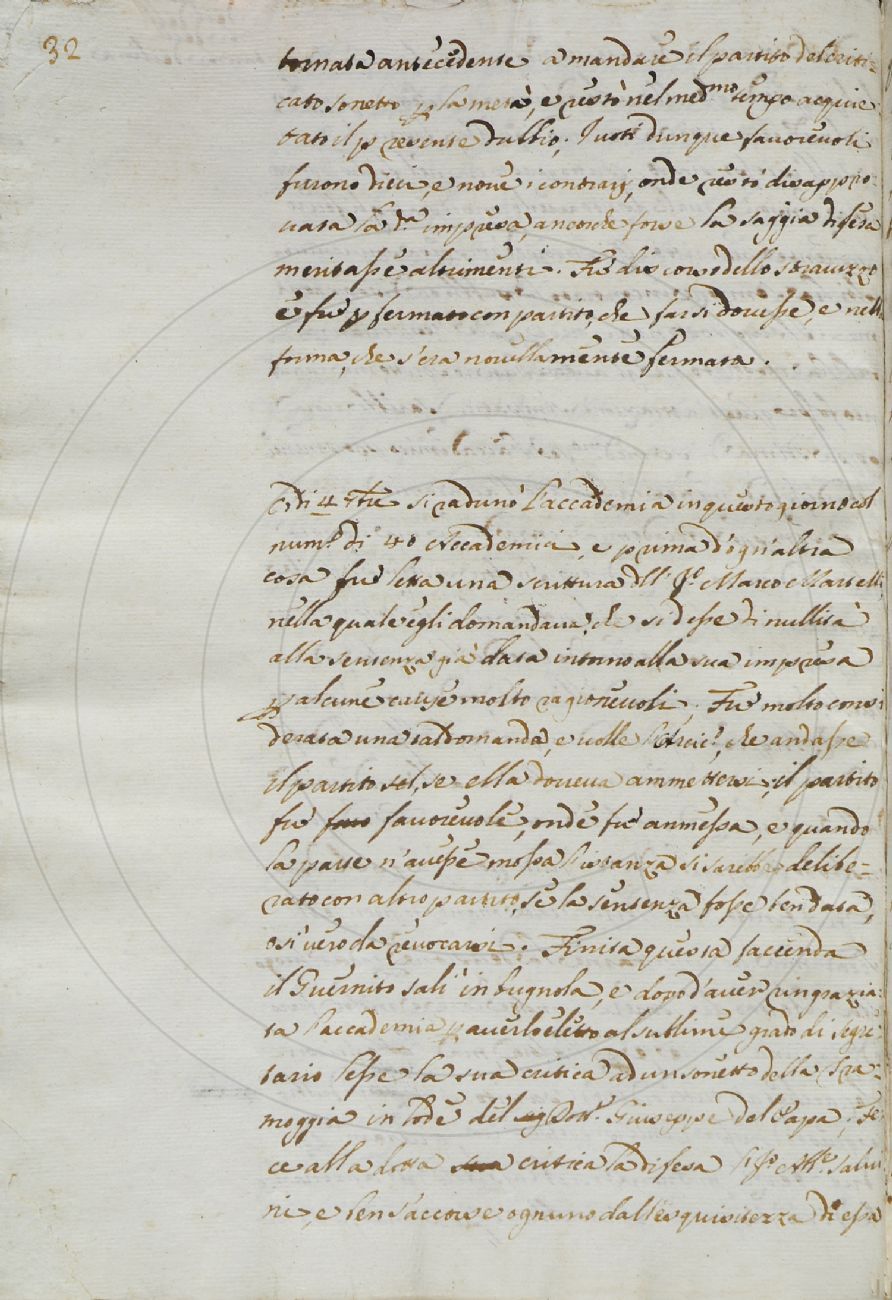 32
tornata antecedente a mandare il partito del criti-
cato sonetto p la metà, e restò nel med.mo tempo acquie
tato il presente dubbio. I voti dunque favorevoli
furono dieci, e nove i contrarij, onde restò disappro-
vata la d.a impresa, ancorche forse la saggia difesa
meritasse altrimenti. Fù discorso dello stravizzo
e fù p fermato con partito, che farsi dovesse, e nella
forma, che s'era novellamente fermata.
A dì 4 7bre si radunò l'accademia in questo giorno col
num.o di 40 Accademici, e prima d'ogn'altra
cosa fù letta una scrittura dell' S.r Marco Martelli
nella quale egli domandava, che si desse di nullità
alla sentenza già data intorno alla sua impresa
p alcune cause molto ragionevoli. Fù molto consi-
derata una tal domanda, e volle l'Arcic.o, che andasse
il partito sol, se ella doveva ammettersi, il partito
fù favorevole, onde fù ammessa, e quando
la parte n'avesse mossa l'istanza si sarebbe delibe-
rato con altro partito, se la sentenza fosse ben data,
o sì vero da revocarsi. Finita questa faccenda
il Guernito salì in bugnola, e dopo d'aver ringrazia-
ta l'accademia p averlo eletto al sublime grado di Segre-
tario lesse la sua critica ad un sonetto della Tra-
moggia in lode del Dott.r Giuseppe del Papa. Fe-
ce alla dotta critica la difesa l'S.r Ab.te Salvi
ni, e ben s'accorse ognuno dall'esquisitezza di essa